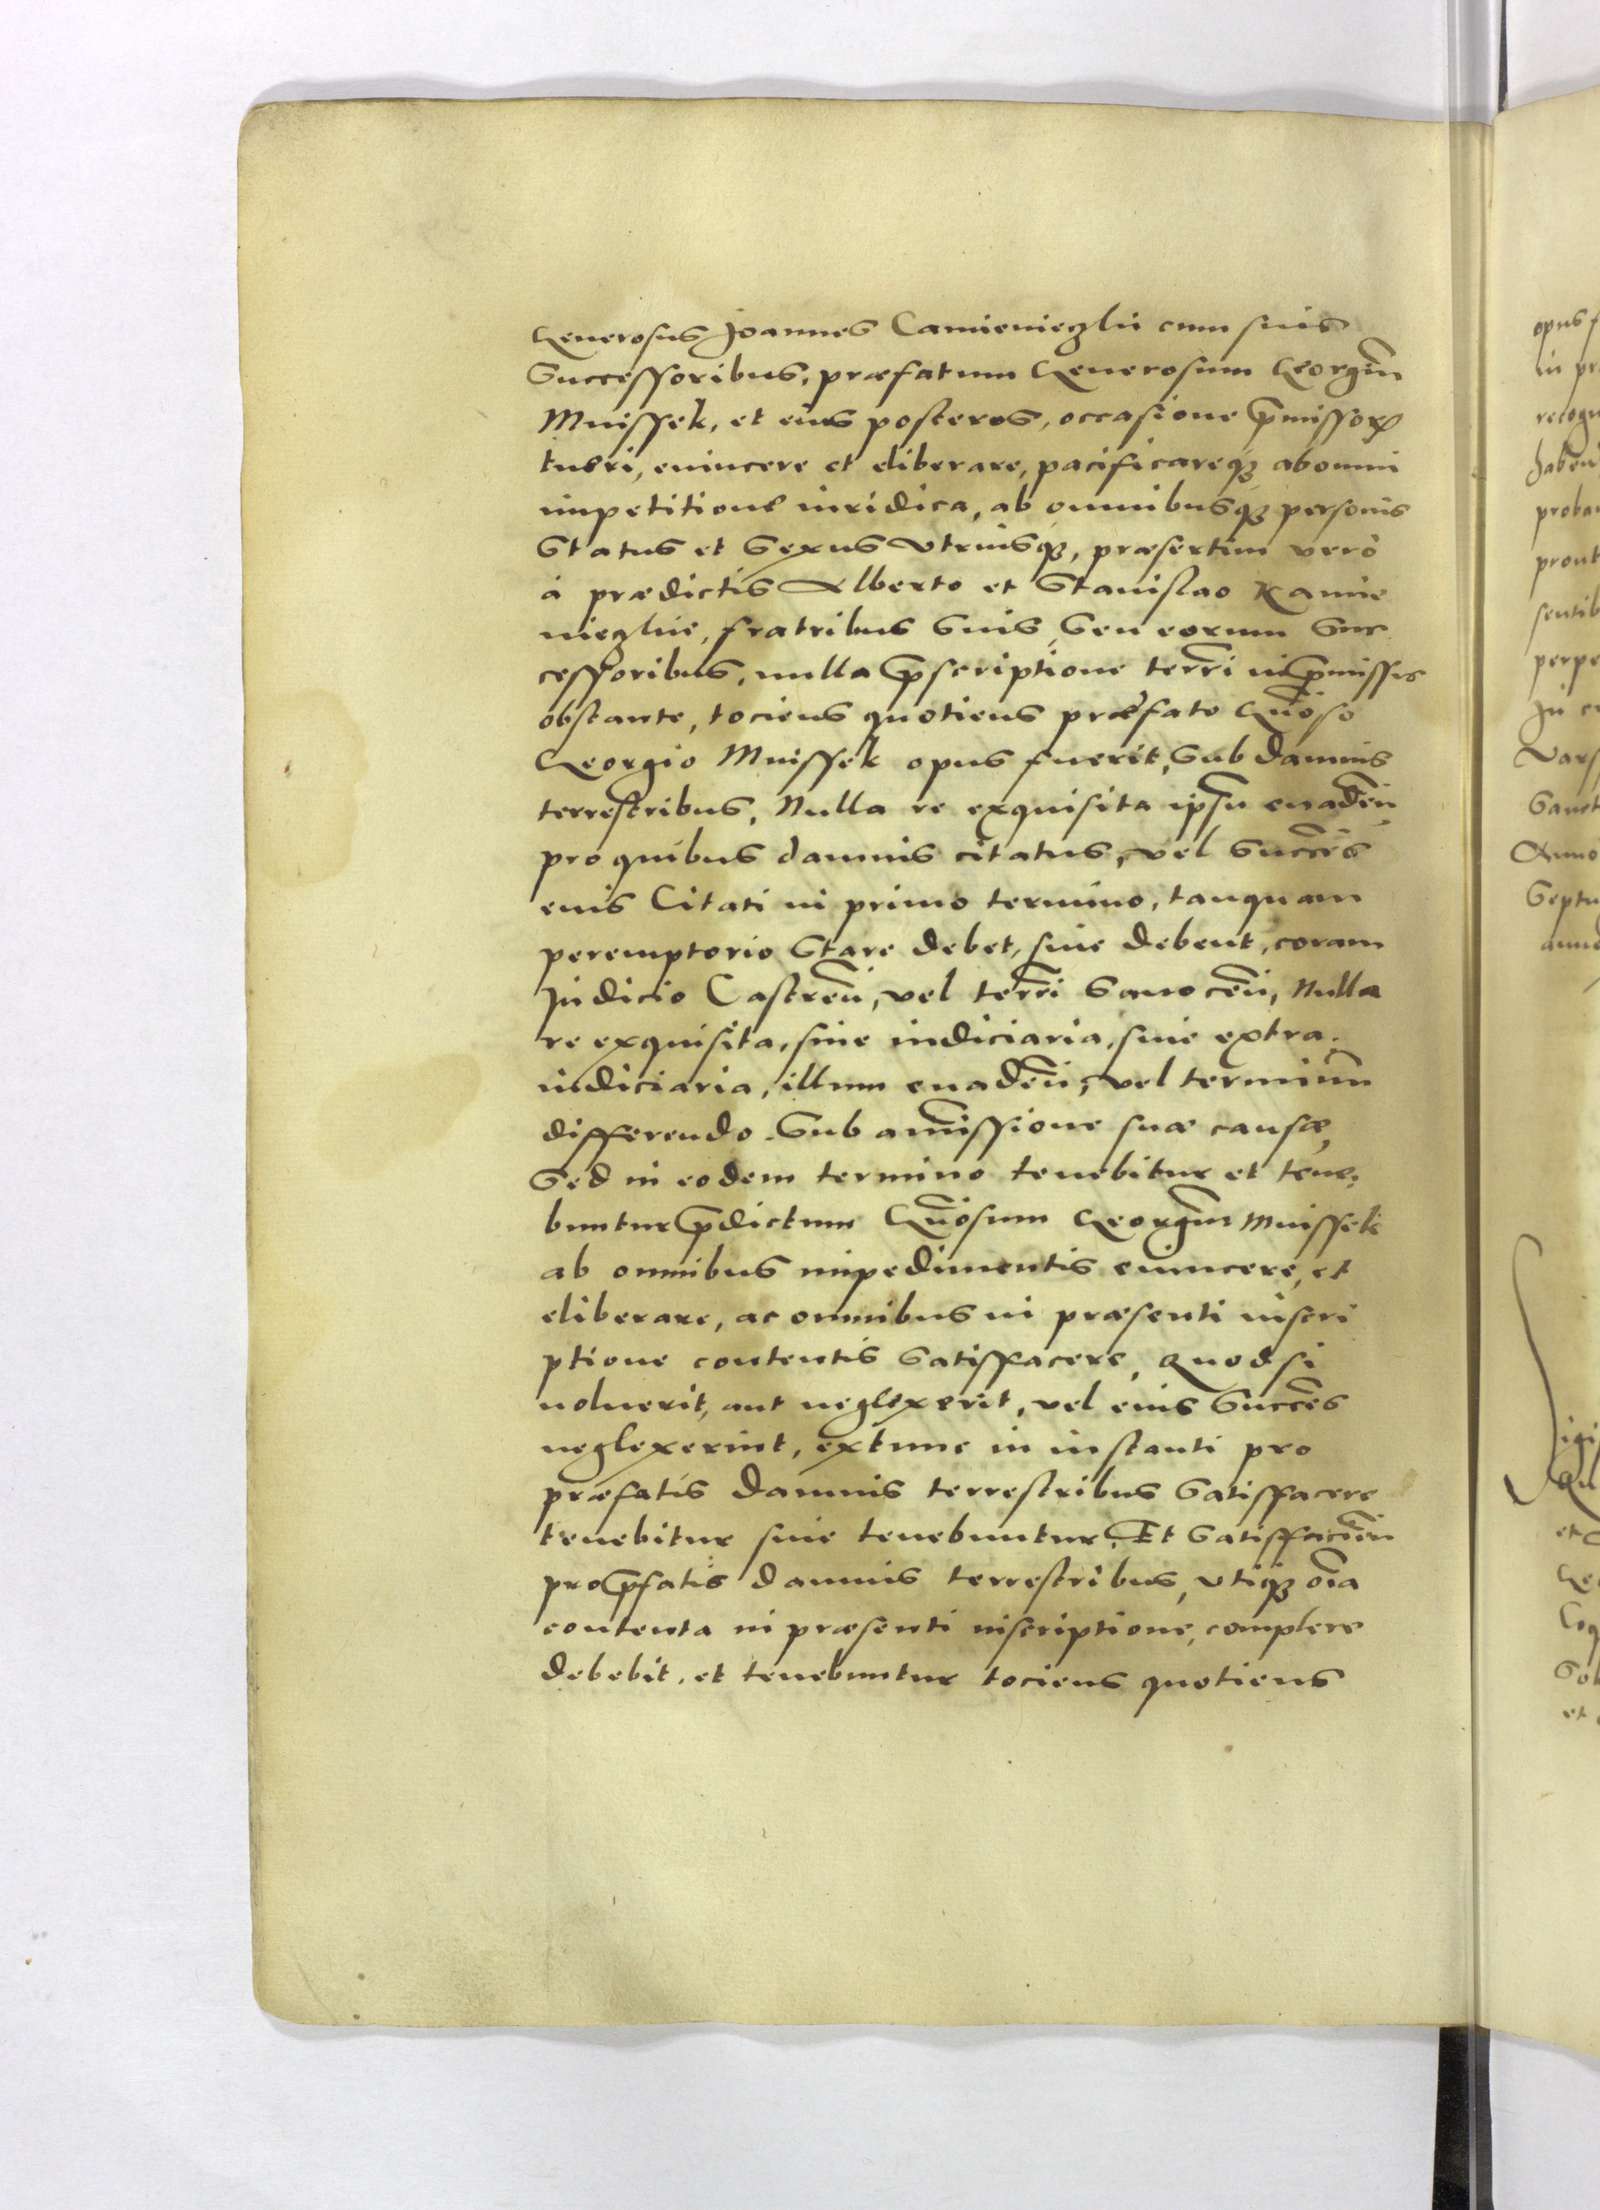 Generosus Joannes Camienieczkii cum suis
Successoribus, præfatum Generosum Georgiū
Mnissek, et eius posteros, occasione p̄missorꝝ
tueri, evincere et eliberare, pacificareqꝫ ab omni
impetitione iuridica, ab omnibusqꝫ personis
Status et Sexus Utriusqꝫ, præsertim verò
à prædictis Alberto et Stanislao Kamie
nieczkie, fratribus Suis, Seu eorum Suc
cessoribus, nulla p̄scriptione terrī in p̄missis
obstante, tociens quotiens præfato Gn̄oso
Georgio Mnissek opus fuerit, Sub damnis
terrestribus, Nulla re exquisita ipsū evadeñ,
pro quibus damnis citatus, vel Succēs
eius Citati in primo termino, tanquam
peremptorio Stare debet, sive debent, coram
Judicio Castreñ, vel terrī Sanoceñ, Nulla
re exquisita, sive iudiciaria, sive extra.
iudiciaria, illum evadeñ, vel terminū
differendo. Sub amissione suæ causæ,
Sed in eodem termino tenebitur et tene,
buntur p̄dictum Gn̄osum Georgiū Mnissek
ab omnibus impedimentis evincere, et
eliberare, ac omnibus in præsenti inscri
ptione contentis Satisfacere, Quod si
noluerit, aut neglexerit, vel eius Succēs
neglexerint, extunc in instanti pro
præfatis damnis terrestribus Satisfacere
tenebitur sive tenebuntur, Et Satisfacieñ
pro p̄fatis damnis terrestribus, utiqꝫ oīa
contenta in præsenti inscriptione, complere
debebit, et tenebuntur tociens quotiens